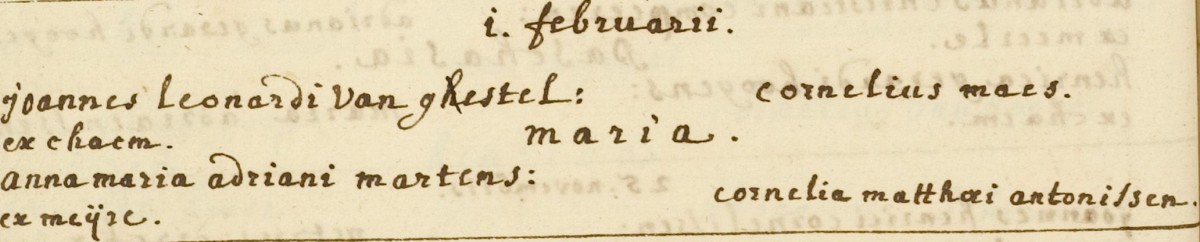 i. februarii.
joannes leonardi van ghestel: cornelius maes.
ex chaem. maria.
anna maria adriani martens: cornelia matthæi antonissen.
ex meÿre.